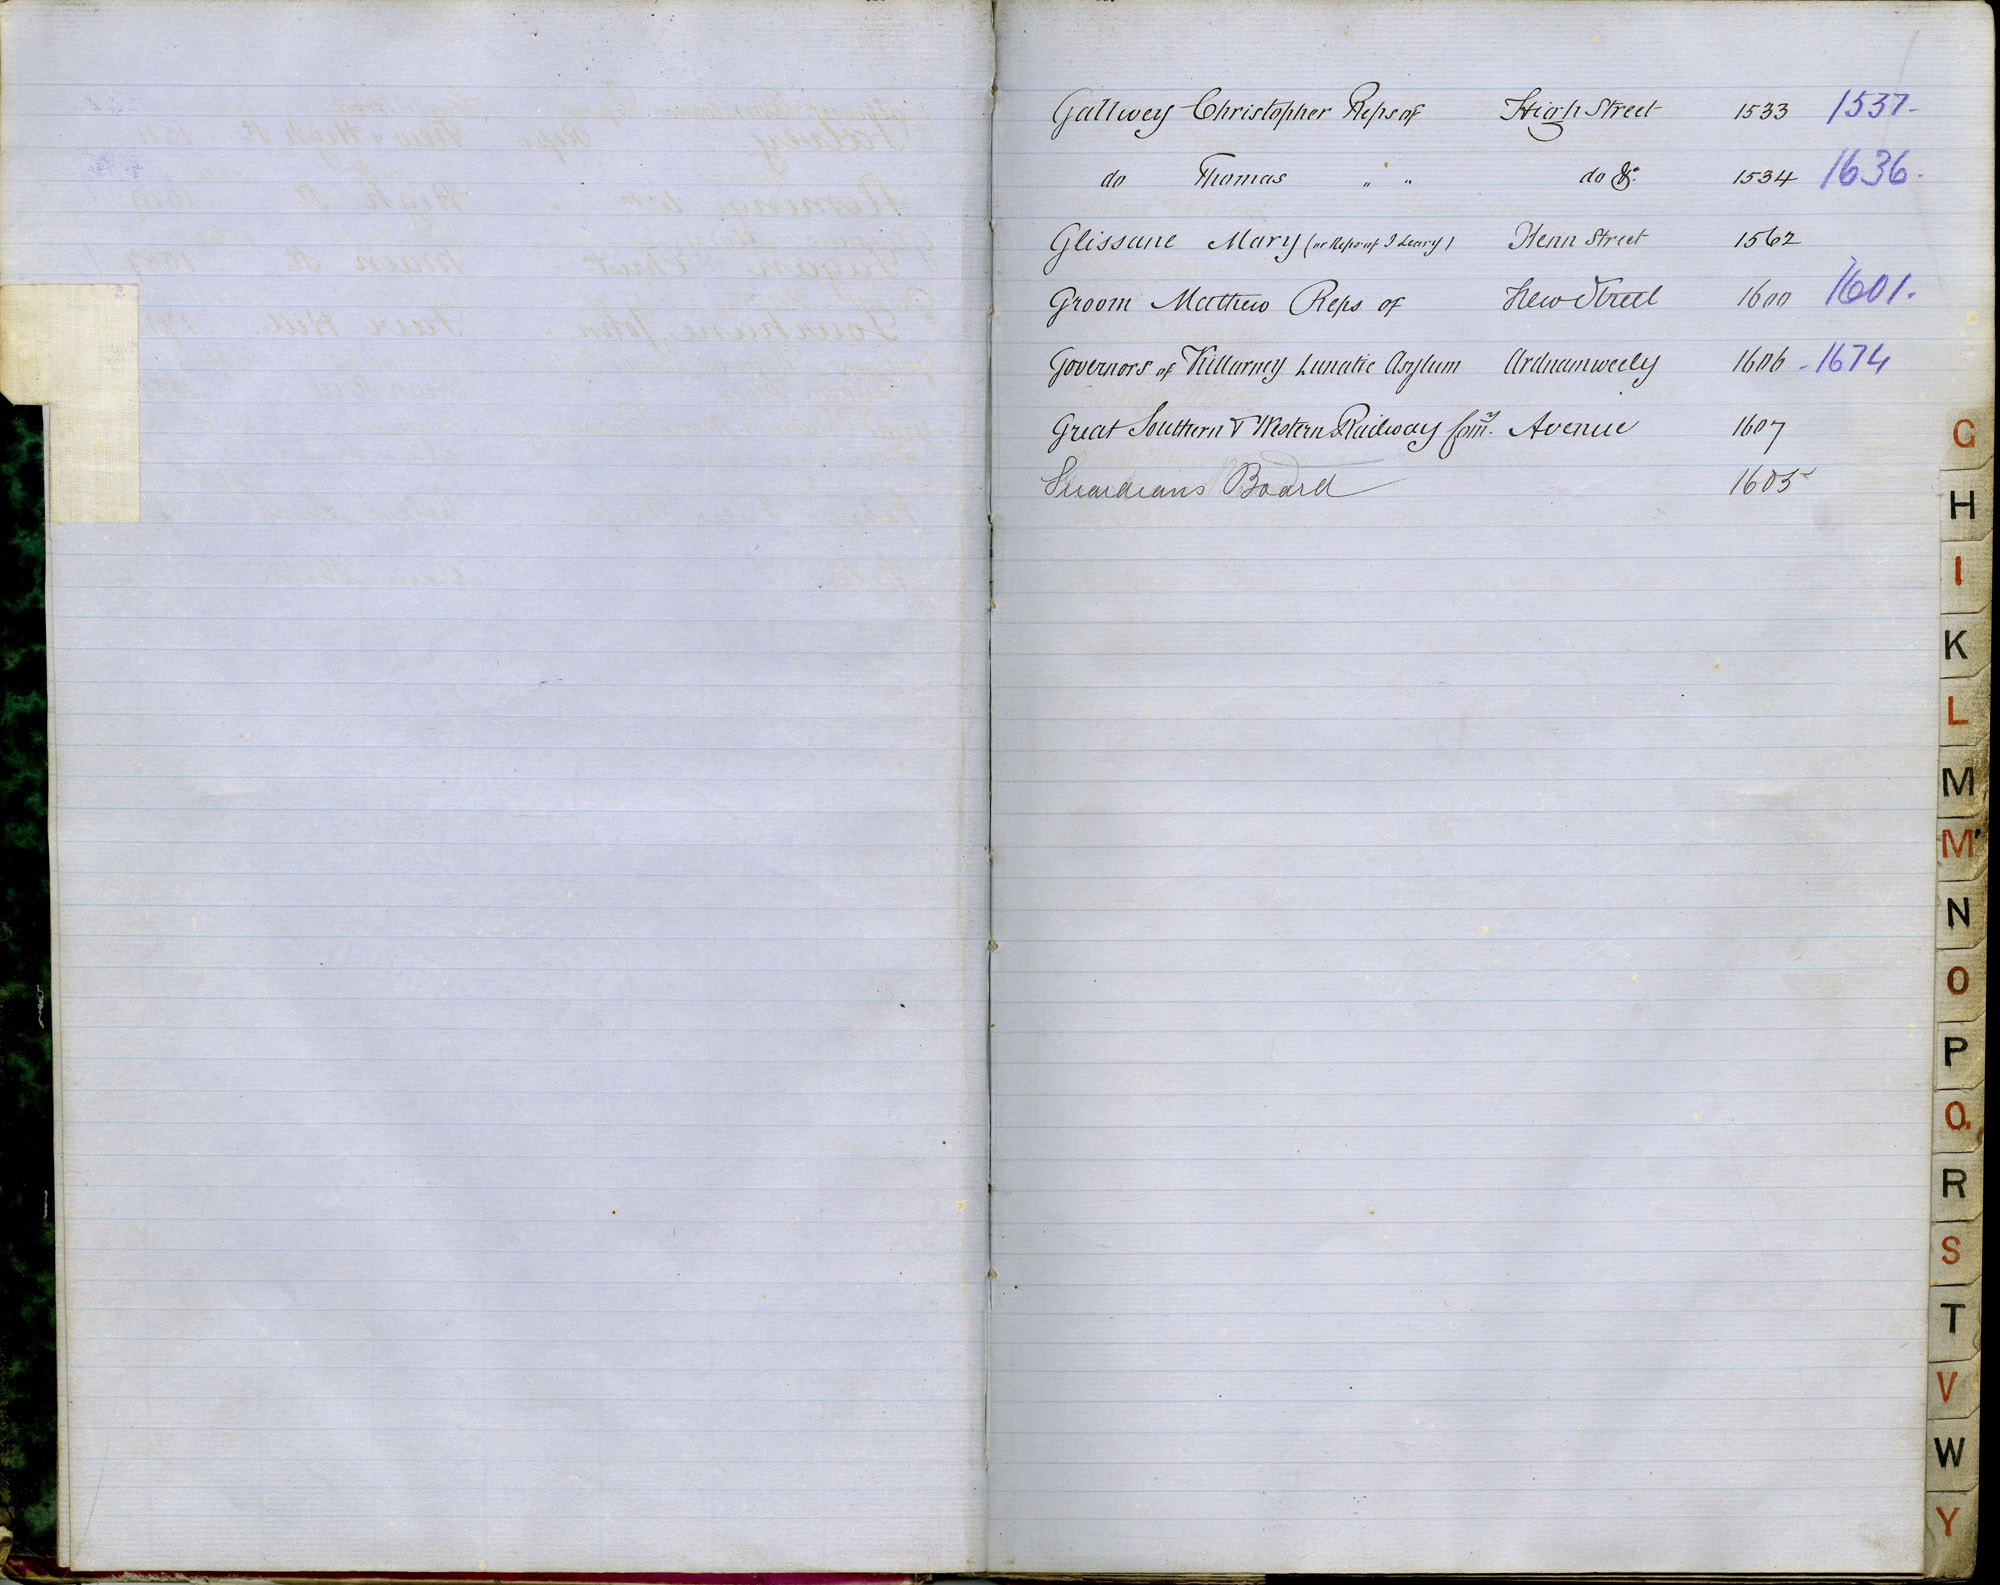 Gallwey Christopher Reps of High Street 1533 1537-
do Thomas " " do &c. 1534 1636-
Glissane Mary (or Reps of J Leary) Henn Street 1562
Groom Mathew Reps of New Street 1600 1601.
Governors of Killarney Lunatic Asylum Ardnamweely 1606 - 1674
Great Southern & Western Railway Comy. Avenue 1607
Guardians Board 1605
G
H
I
K
L
M
M'
N
O
P
Q
R
S
T
V
W
Y